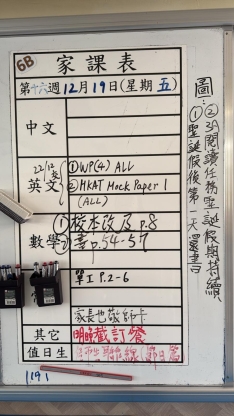 6B
家課表
第十六週12月19日(星期五)
中文
22/12
英文
①WP(4) ALL
②HKAT Mock Paper 1
(ALL)
數學
①校本改及p.8
②書p.54-57
單工 P.2-6
家長也敬師卡
其它
明時截訂餐
值日生
圖:
②3A閱讀任務聖誕假期持續
①聖誕假後第一天還書
19